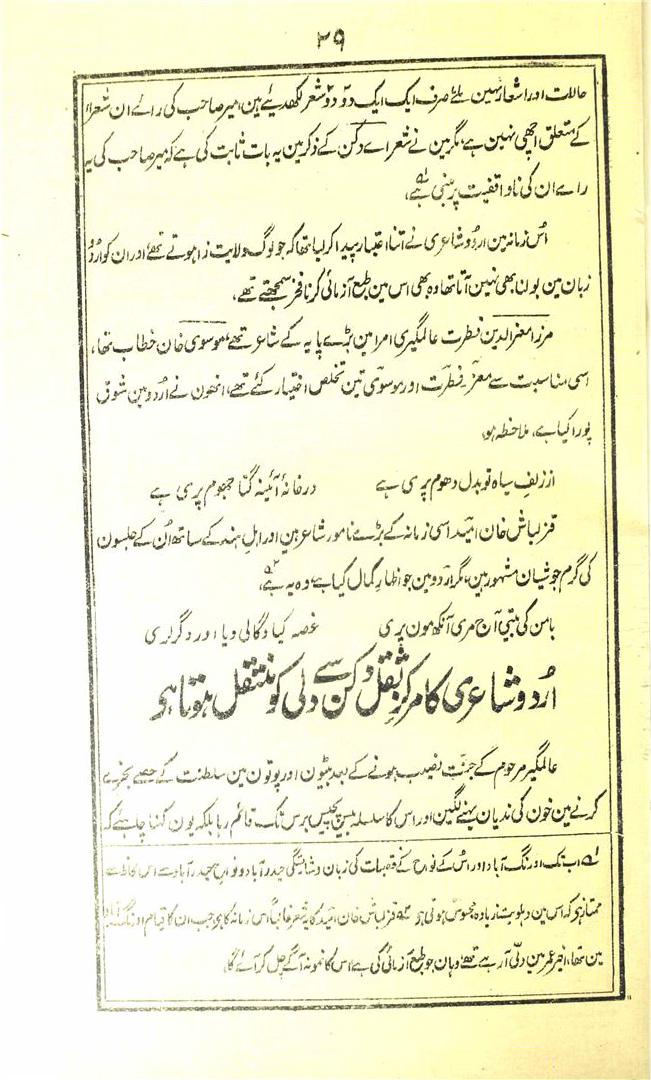 ۲۹
حالات اور اشعار نہین ملے صرف ایک ایک دو دو شعر لکھدیئے ہین، میر صاحب کی رائے ان شعراء
کے متعلق اچھی نہین ہے، مگر مین نے شعراے دکن کے ذکر مین یہ بات ثابت کی ہے کہ میر صاحب کی یہ
راے ان کی ناواقفیت پر مبنی ہے،
اُس زمانہ مین اردو شاعری نے اتنا اعتبار پیدا کر لیا تھا کہ جو لوگ ولایت زا ہوتے تھے اور ان کو اردو
زبان مین بولنا بھی نہین آتا تھا وہ بھی اس مین طبع آزمائی کرنا فخر سمجھتے تھے،
مرزا معز الدین فطرت عالمگیری امرا مین بڑے پایہ کے شاعر تھے، موسوی خان خطاب تھا،
اسی مناسبت سے معز، فطرت اور موسوی تین تخلص اختیار کئے تھے، انھون نے اردو مین شوق
پورا کیا ہے، ملاحظہ ہو،
از زلفِ سیاہ تو بدل دھوم پری ہے درخانۂ آئینہ گتا جھوم پری ہے
قزلباش خان امید اسی زمانہ کے بڑے نامور شاعر ہین اور اہلِ ہند کے ساتھ اُن کے جلسون
کی گرم جوشیان مشہور ہین، مگر اردو مین جو اظہارِ کمال کیا ہے، وہ یہ ہے،
بامن کی بیتی آج مری آنکھ مون پری غصہ کیا و گالی دیا اور دگر لری
اُردو شاعری کا مرکزِ ثقل دکن سے دلی کو منتقل ہوتا ہے
عالمگیر مرحوم کے جنت نصیب ہونے کے بعد بیٹون اور پوتون مین سلطنت کے حصے بخرے
کرنے مین خون کی ندیان بہنے لگین اور اس کا سلسلہ بیس پچیس برس تک قائم رہا بلکہ یون کہنا چاہئے کہ
لہ اب تک اورنگ آباد اور اس کے نواح کے قصبات کی زبان و شائستگی حیدرآباد و نواح حیدرآباد سے اس لحاظ سے
ممتاز ہے کہ اس مین دہلویت زیادہ محسوس ہوتی ہے قزلباش خان امید کا یہ شعر غالباً اُس زمانہ کا ہے جب ان کا قیام اورنگ آباد
مین تھا، اخیر عمر مین دلّی آ رہے تھے، وہان جو طبع آزمائی کی ہے اس کا نمونہ آگے چل کر آئے گا،